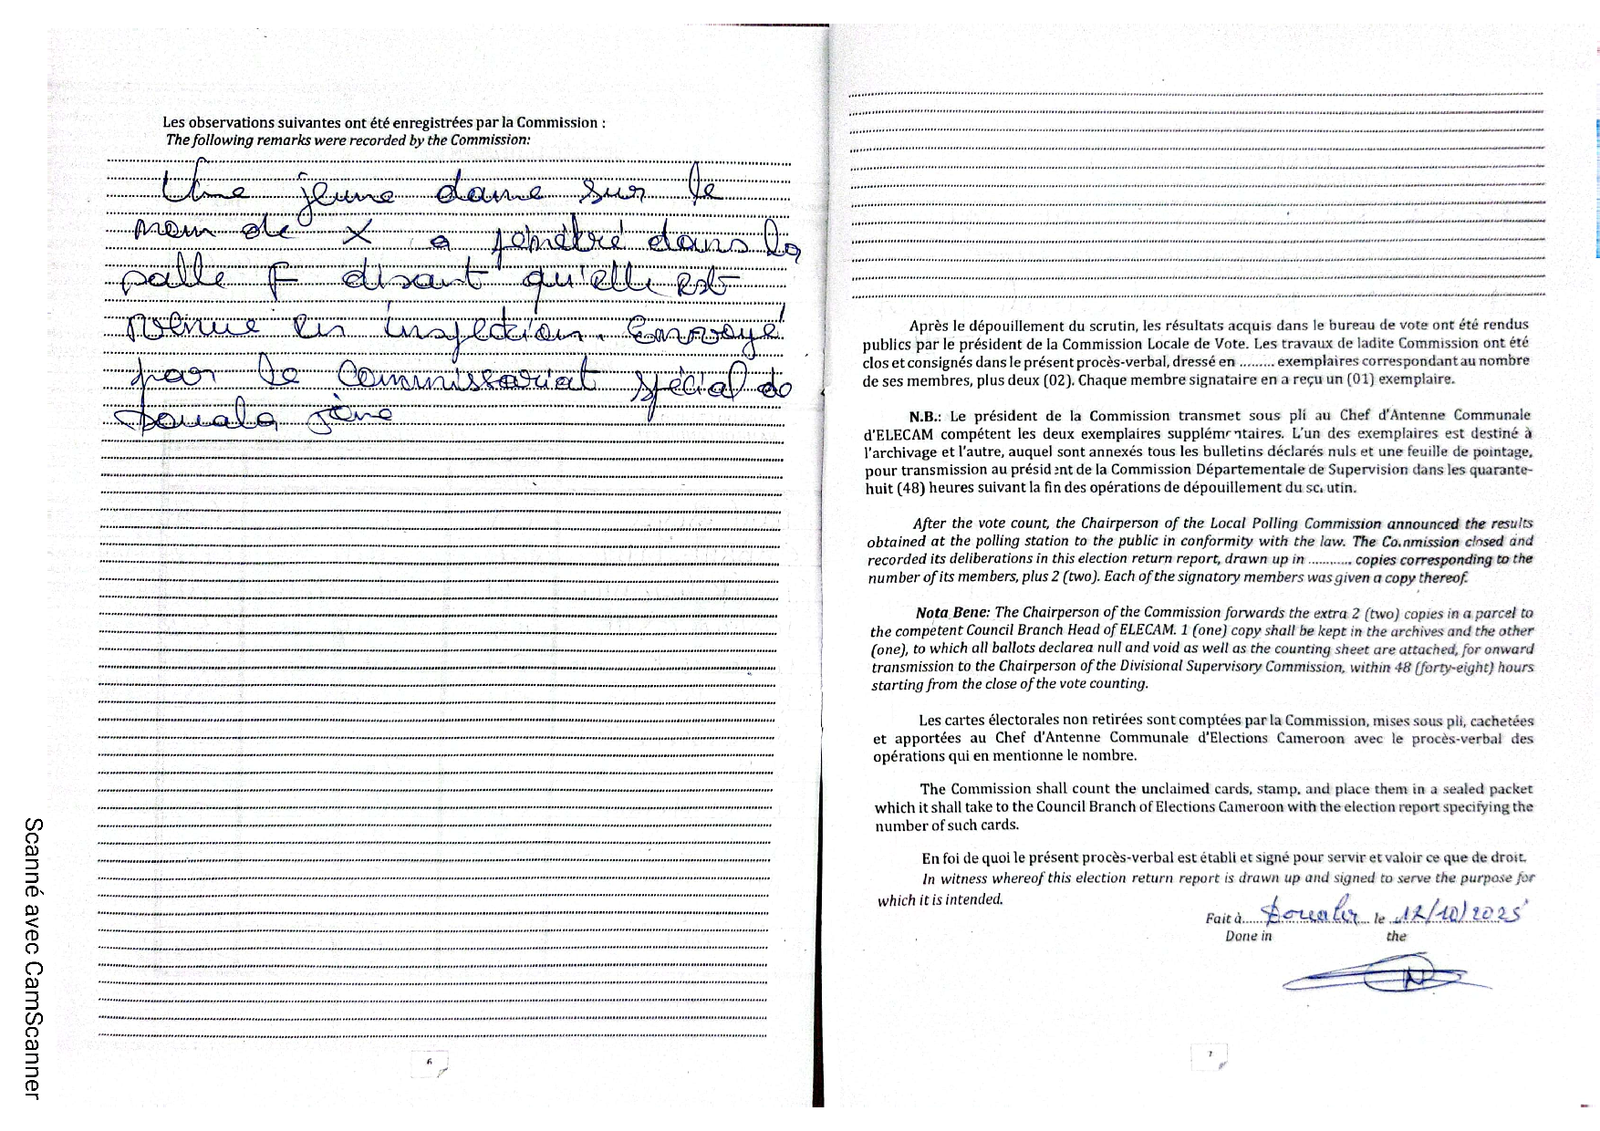 Les observations suivantes ont été enregistrées par la Commission :
The following remarks were recorded by the Commission:
Une jeune dame sur le
nom de X a pénétré dans la
salle F disant qu'elle est
venue en inspection. Envoyé
par le Commissariat spécial de
Douala 5ème
6
Après le dépouillement du scrutin, les résultats acquis dans le bureau de vote ont été rendus
publics par le président de la Commission Locale de Vote. Les travaux de ladite Commission ont été
clos et consignés dans le présent procès-verbal, dressé en ......... exemplaires correspondant au nombre
de ses membres, plus deux (02). Chaque membre signataire en a reçu un (01) exemplaire.
N.B.: Le président de la Commission transmet sous pli au Chef d'Antenne Communale
d'ELECAM compétent les deux exemplaires supplémentaires. L'un des exemplaires est destiné à
l'archivage et l'autre, auquel sont annexés tous les bulletins déclarés nuls et une feuille de pointage,
pour transmission au président de la Commission Départementale de Supervision dans les quarante-
huit (48) heures suivant la fin des opérations de dépouillement du scrutin.
After the vote count, the Chairperson of the Local Polling Commission announced the results
obtained at the polling station to the public in conformity with the law. The Commission closed and
recorded its deliberations in this election return report, drawn up in ........... copies corresponding to the
number of its members, plus 2 (two). Each of the signatory members was given a copy thereof.
Nota Bene: The Chairperson of the Commission forwards the extra 2 (two) copies in a parcel to
the competent Council Branch Head of ELECAM. 1 (one) copy shall be kept in the archives and the other
(one), to which all ballots declarea null and void as well as the counting sheet are attached, for onward
transmission to the Chairperson of the Divisional Supervisory Commission, within 48 (forty-eight) hours
starting from the close of the vote counting.
Les cartes électorales non retirées sont comptées par la Commission, mises sous pli, cachetées
et apportées au Chef d'Antenne Communale d'Elections Cameroon avec le procès-verbal des
opérations qui en mentionne le nombre.
The Commission shall count the unclaimed cards, stamp, and place them in a sealed packet
which it shall take to the Council Branch of Elections Cameroon with the election report specifying the
number of such cards.
En foi de quoi le présent procès-verbal est établi et signé pour servir et valoir ce que de droit.
In witness whereof this election return report is drawn up and signed to serve the purpose for
which it is intended.
Fait à Douala le 12/10/2025
Done in the
7
Scanné avec CamScanner